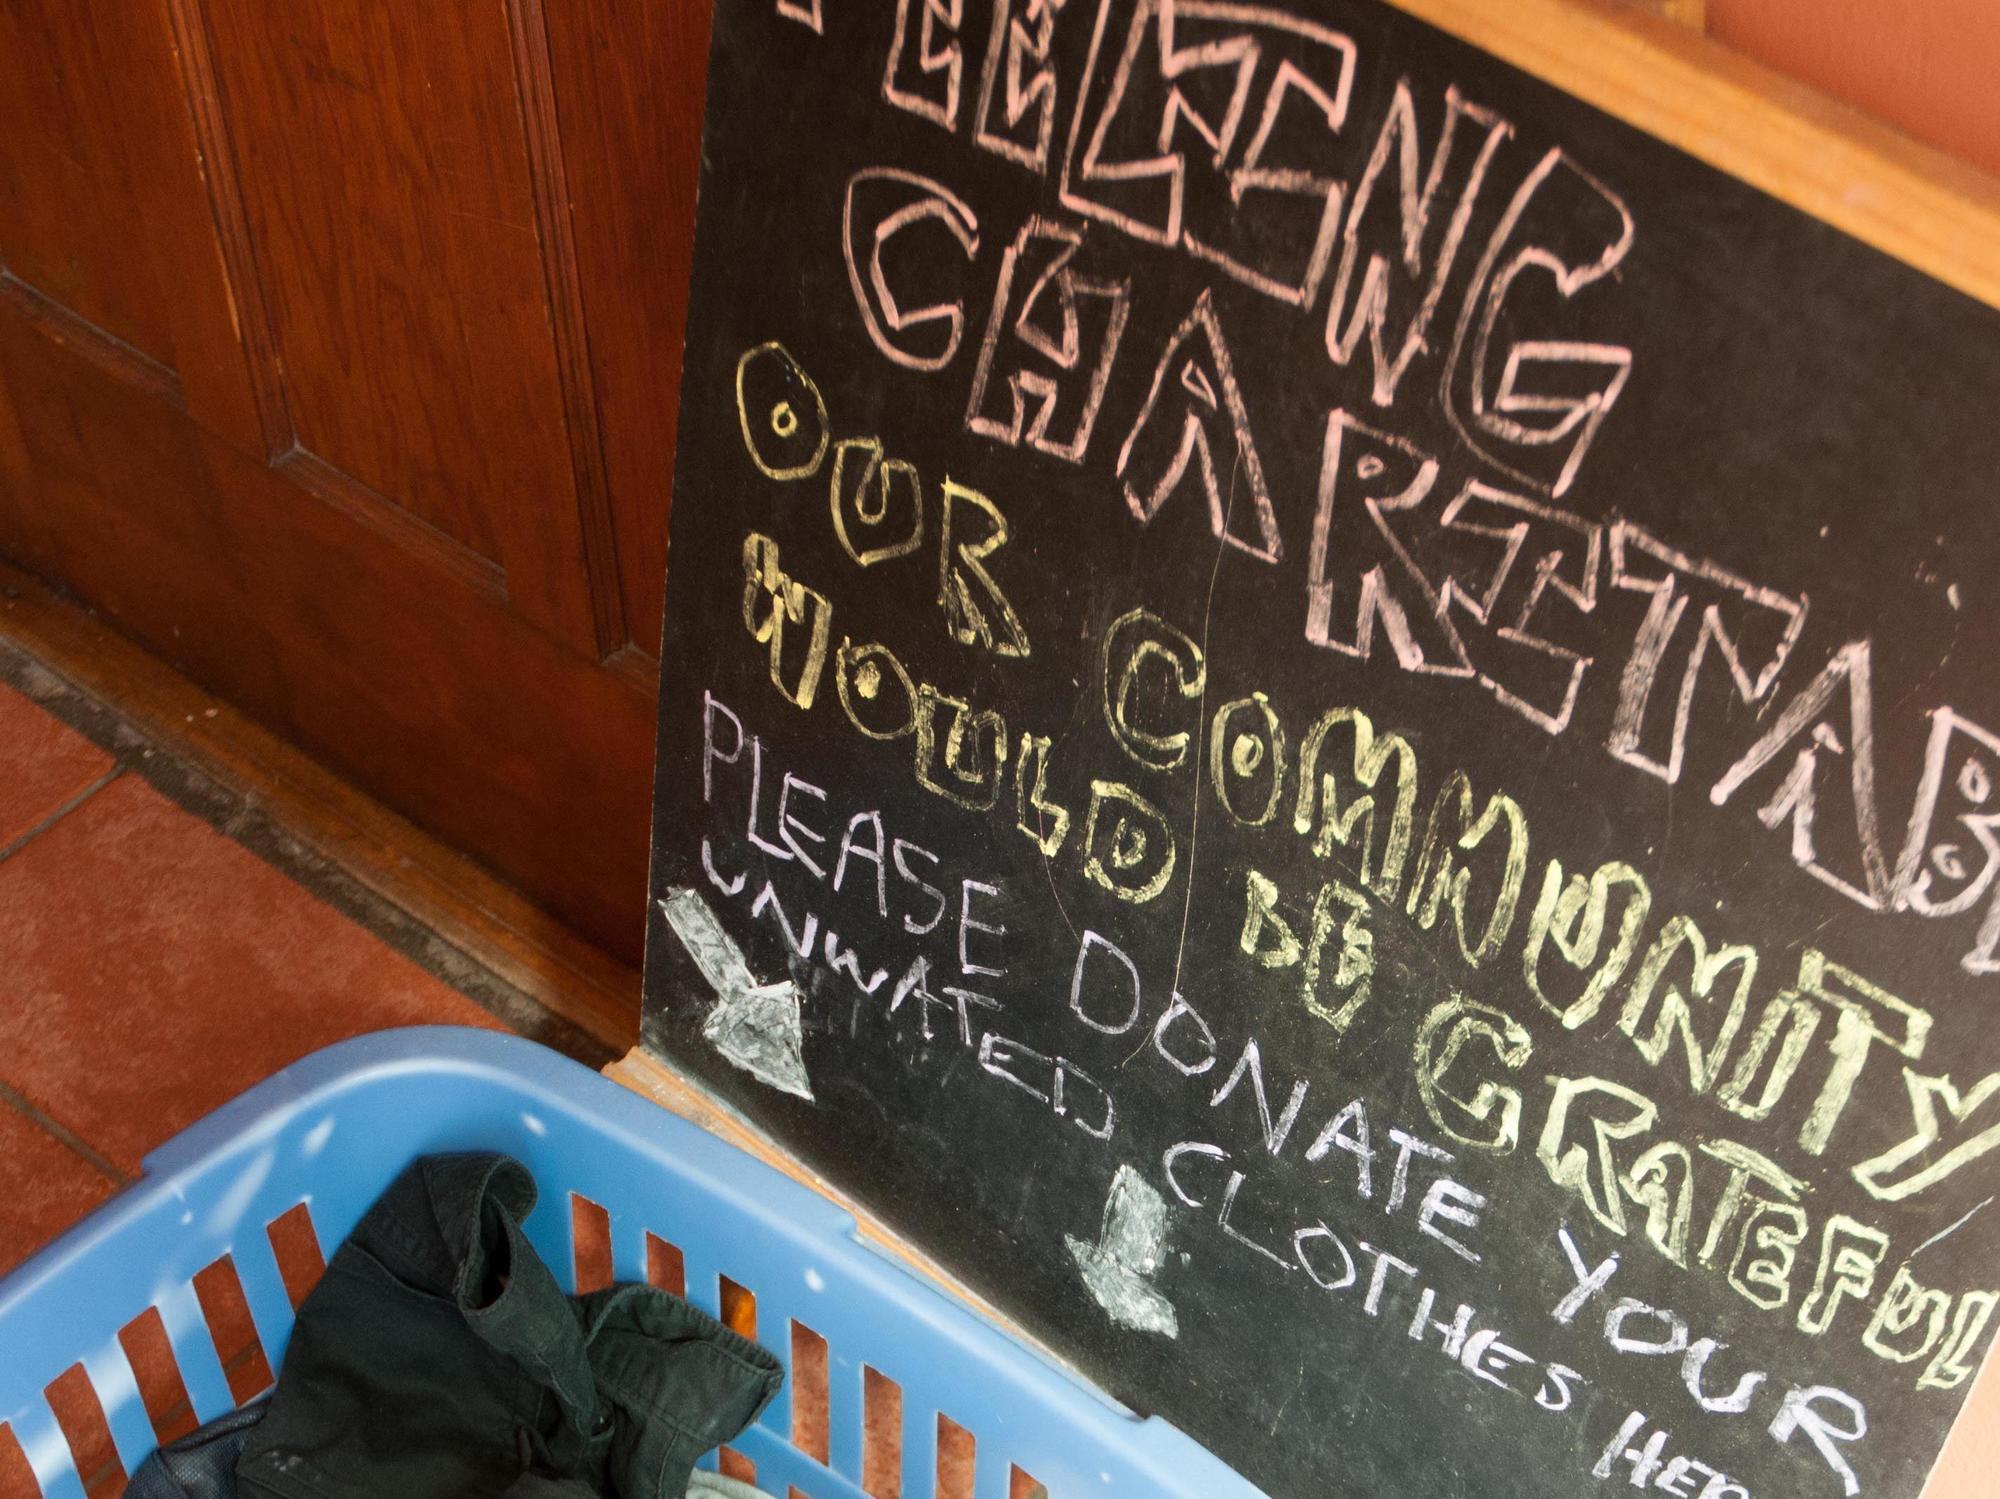 FEELING
CHARITAB
OUR COMMUNITY
WOULD BE GRATEFUL
PLEASE DONATE YOUR
UNWATED CLOTHES HER